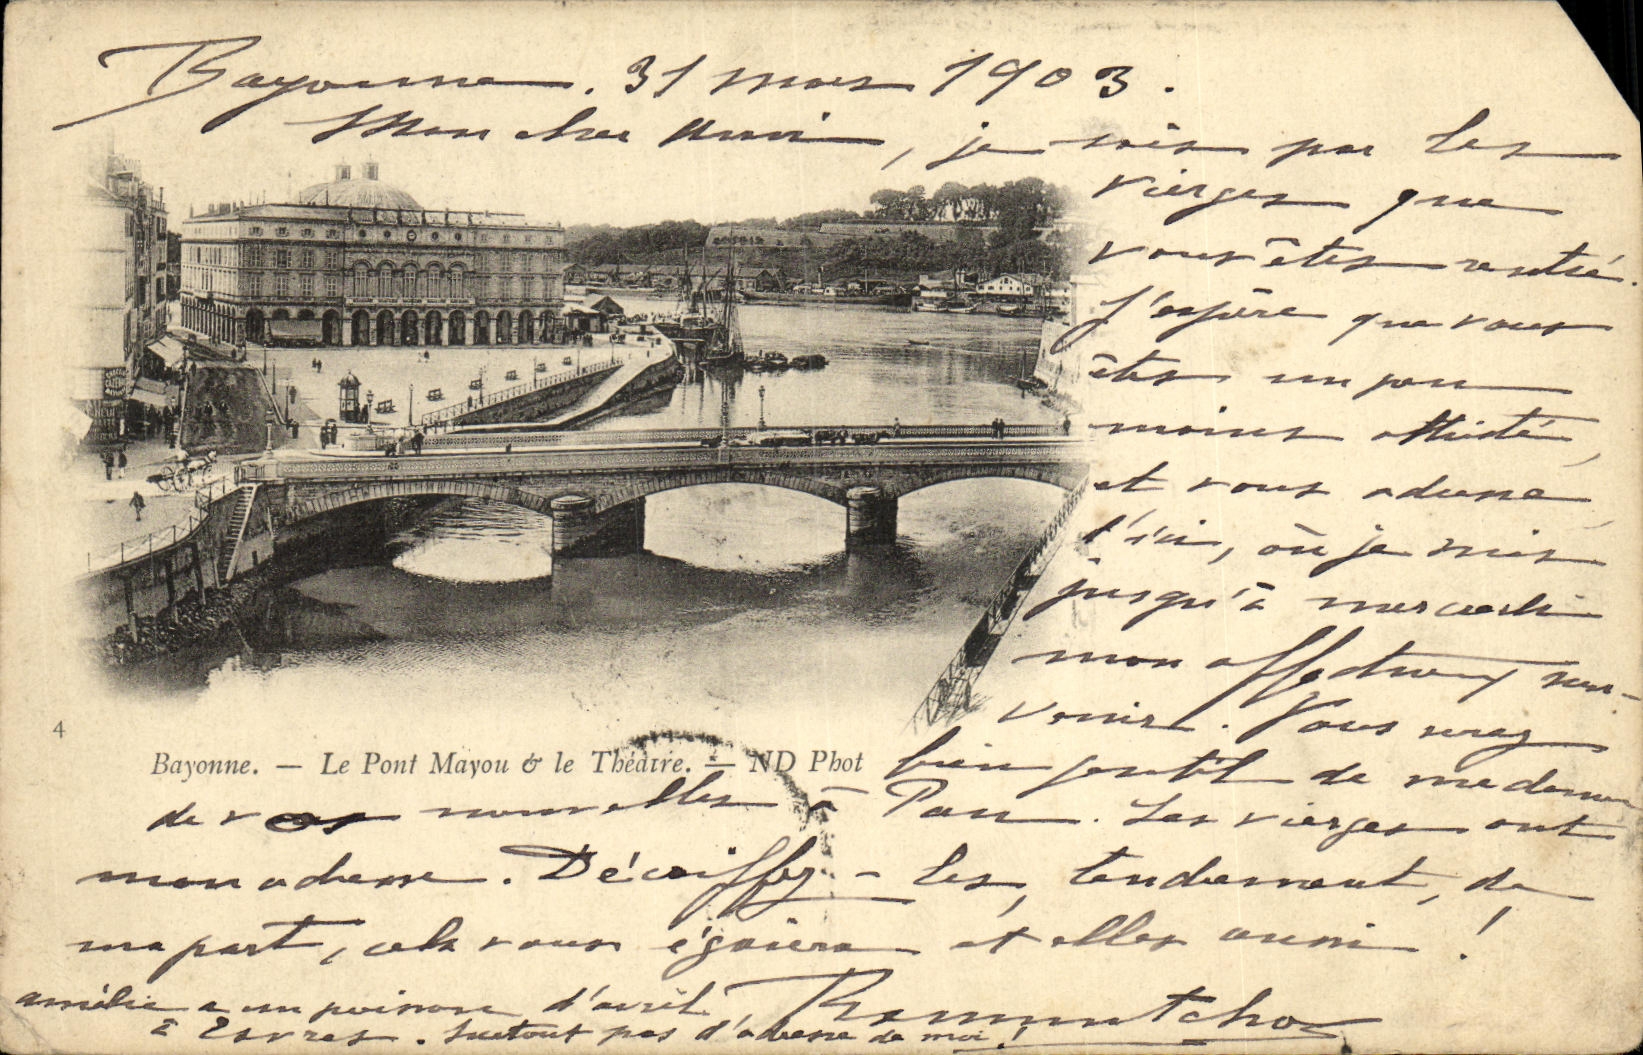 Bayonne. 31 mars 1903.
Mon cher ami, je sais par les
vierges que
vous êtes rentré.
J'espère que vous
êtes un peu
moins attristé,
et vous adresse
d'ici, où je suis
jusqu'à mercredi
mon affectueux sou-
venir. Vous serez
bien gentil de me donner
de vos nouvelles à Pau. Les vierges ont
mon adresse. Décoiffez-les, tendrement, de
ma part, cela vous égaiera et elles aussi !
Ramuntcho
amélie a un poisson d'avril
à Esvres. Surtout pas d'adresse de moi !
4
Bayonne. — Le Pont Mayou & le Théâtre. — ND Phot